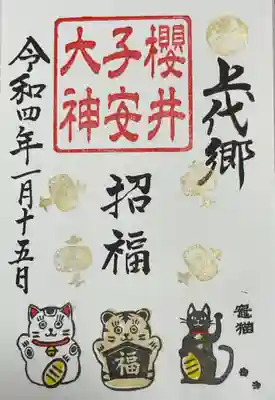 上代郷
櫻井
子安
大神
招福
令和四年一月十五日
竈猫
福